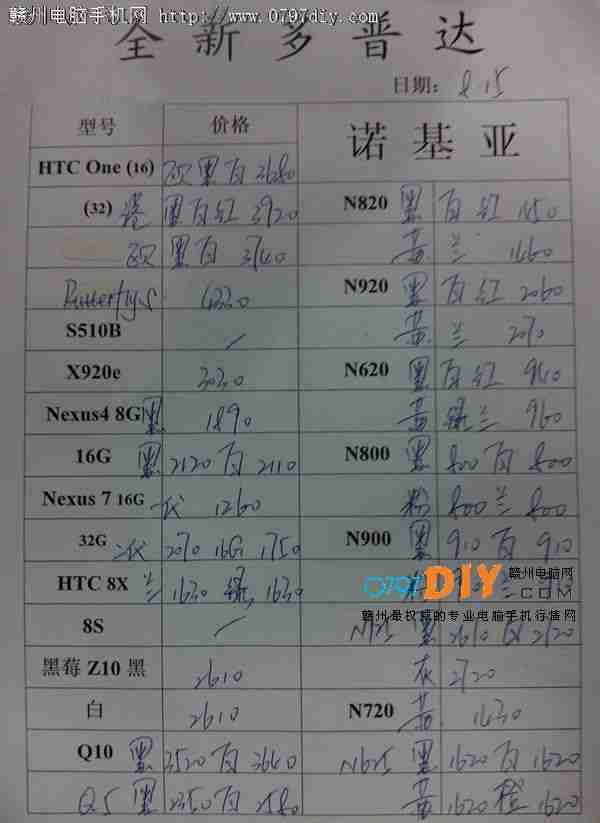 赣州电脑手机网 http://www.0797diy.com
全新多普达
日期: 8.15
型号 价格 诺基亚
HTC One (16) 欧黑白 3680
(32) 港 黑白红 3920 N820 黑 白红 1450
欧 黑白 3740 黄 兰 1460
Butterfly s 4330 N920 黑 白红 2060
S510B — 黄 兰 2070
X920e 3030 N620 黑 白红 940
Nexus4 8G 黑 1890 黄 绿兰 960
16G 黑 2120 白 2110 N800 黑 800 白 800
Nexus 7 16G 一代 1260 粉 800 兰 800
32G 二代 2070 16G 1750 N900 黑 910 白 910
HTC 8X 兰 1630 绿 1630
0797DIY 赣州电脑网 .COM
赣州最权威的专业电脑手机行情网
8S — N925 黑 2610 白 2720
黑莓 Z10 黑 2610 灰 2720
白 2610 N720 黄 1430
Q10 黑 3520 白 3640 N625 黑 1620 白 1620
Q5 黑 2350 白 2580 黄 1620 橙 1620